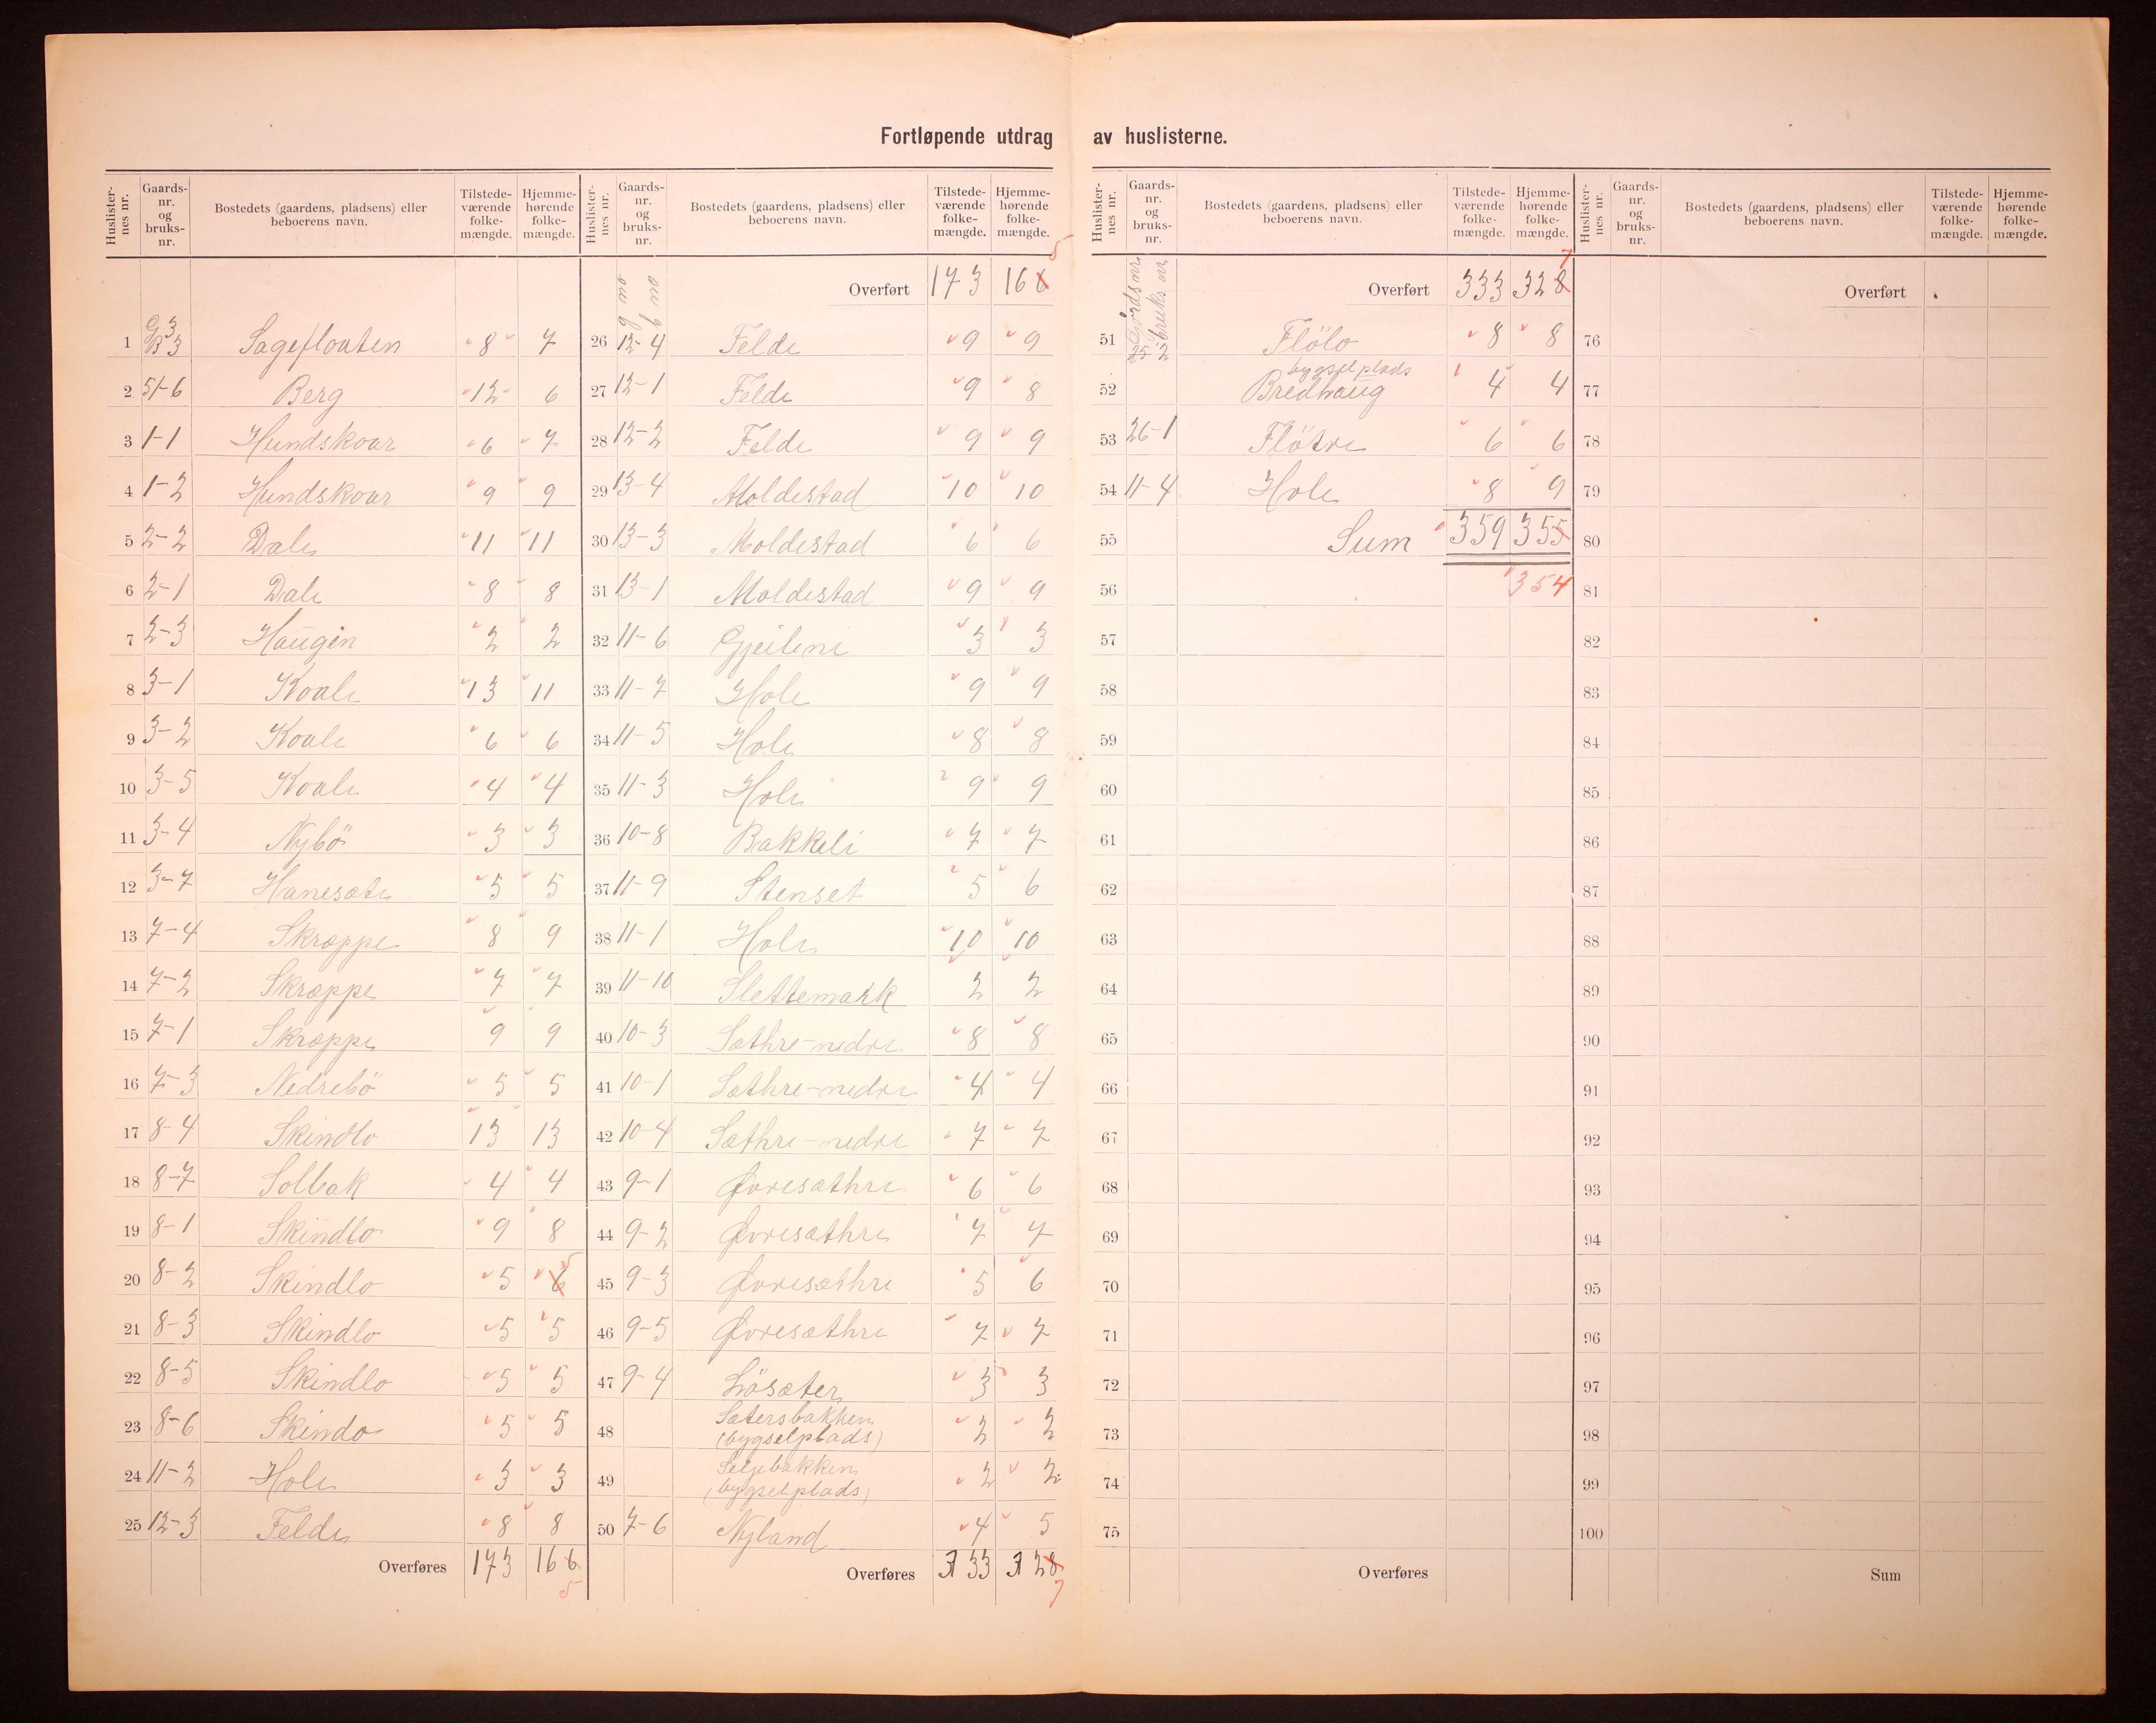 Fortløpende utdrag av huslisterne.
Huslisternes nr. Gaardsnr. og bruksnr. Bostedets (gaardens, pladsens) eller beboerens navn. Tilstedeværende folkemængde. Hjemmehørende folkemængde.
1 G 3 B 3 Sagefloaten 8 7
2 51-6 Berg 12 6
3 1-1 Hundskoar 6 7
4 1-2 Hundskoar 9 9
5 2-2 Dale 11 11
6 2-1 Dale 8 8
7 2-3 Haugen 2 2
8 3-1 Koale 13 11
9 3-2 Koale 6 6
10 3-5 Koale 4 4
11 3-4 Nybö 3 3
12 3-7 Hanesæte 5 5
13 7-4 Skræppe 8 9
14 7-2 Skræppe 7 7
15 7-1 Skræppe 9 9
16 7-3 Nedrebö 5 5
17 8-4 Skindlo 13 13
18 8-7 Solbak 4 4
19 8-1 Skindlo 9 8
20 8-2 Skindlo 5 6 5
21 8-3 Skindlo 5 5
22 8-5 Skindlo 5 5
23 8-6 Skindo 5 5
24 11-2 Hole 3 3
25 12-3 Felde 8 8
Overføres 173 166
5
Huslisternes nr. Gaardsnr. og bruksnr. Bostedets (gaardens, pladsens) eller beboerens navn. Tilstedeværende folkemængde. Hjemmehørende folkemængde.
5
Overført 173 166
26 12-4 Felde 9 9
27 12-1 Felde 9 8
28 12-2 Felde 9 9
29 13-4 Moldestad 10 10
30 13-3 Moldestad 6 6
31 13-1 Moldestad 9 9
32 11-6 Gjeilene 3 3
33 11-7 Hole 9 9
34 11-5 Hole 8 8
35 11-3 Hole 9 9
36 10-8 Bakkeli 7 7
37 11-9 Stenset 5 6
38 11-1 Hole 10 10
39 11-10 Slettemark 2 2
40 10-3 Sæthre-nedre 8 8
41 10-1 Sæthre-nedre 4 4
42 10-4 Sæthre-nedre 7 7
43 9-1 Øvresæthre 6 6
44 9-2 Øvresæthre 7 7
45 9-3 Øvresæthre 5 6
46 9-5 Øvresæthre 7 7
47 9-4 Løsæter 3 3
48 Sætersbakken (bygselplads) 2 2
49 (bygselplads) 2 2
50 7-6 Nyland 4 5
Overføres 333 328
7
Huslisternes nr. Gaardsnr. og bruksnr. Bostedets (gaardens, pladsens) eller beboerens navn. Tilstedeværende folkemængde. Hjemmehørende folkemængde.
7
Gårdsnr bruks nr Overført 333 328
51 25 2 Flölo 8 8
bygselplads
52 Bredhaug 4 4
53 26-1 Flötre 6 6
54 11-4 Hole 8 9
55 Sum 359 355
56 354
57
58
59
60
61
62
63
64
65
66
67
68
69
70
71
72
73
74
75
Overføres
Huslisternes nr. Gaardsnr. og bruksnr. Bostedets (gaardens, pladsens) eller beboerens navn. Tilstedeværende folkemængde. Hjemmehørende folkemængde.
Overført
76
77
78
79
80
81
82
83
84
85
86
87
88
89
90
91
92
93
94
95
96
97
98
99
100
Sum